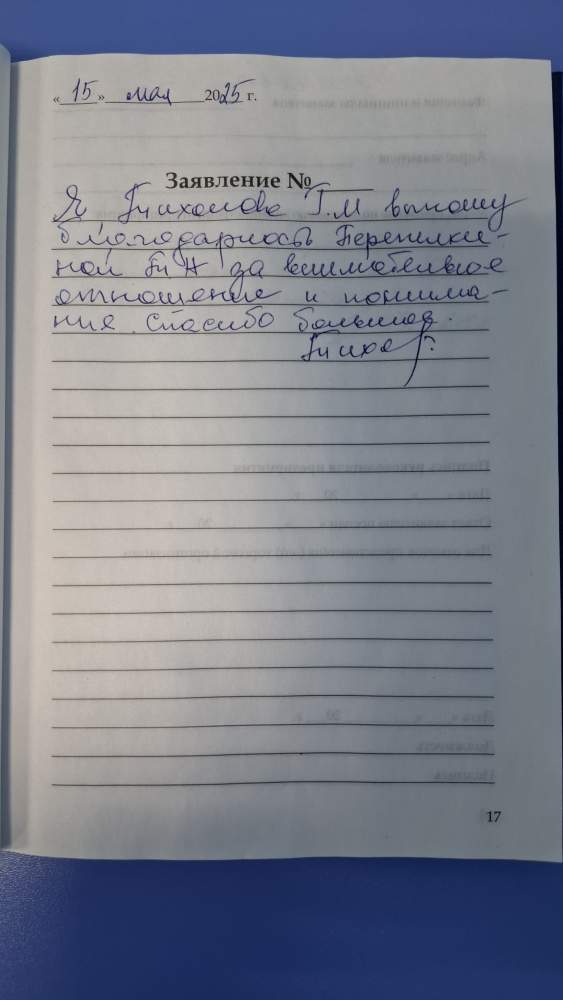 « 15 » мая 2025 г.
Заявление №
Я Тихонова Т.М выношу
благодарность Перепёлки-
ной Т Н за внимательное
отношение и понима-
ние. Спасибо большое.
17